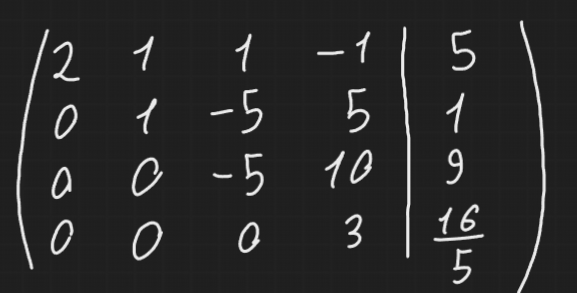 2 1 1 -1 | 5
0 1 -5 5 | 1
0 0 -5 10 | 9
0 0 0 3 | 16/5